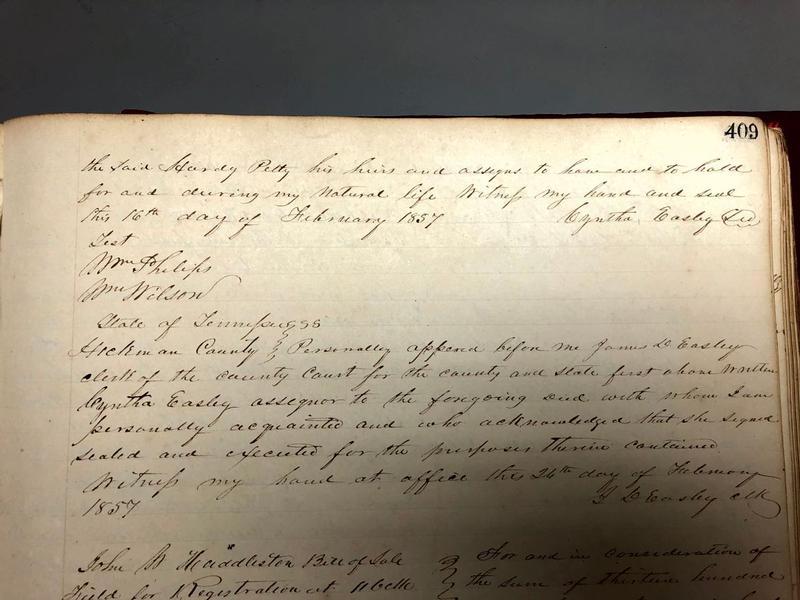 409
the said Hardy Petty his heirs and assigns to have and to hold
for and during my Natural life Witness my hand and seal
this 16th day of February 1857 Cyntha Easley
Test
Wm Philips
Wm Wilson
State of Tennessee
Hickman County Personally appered before me James D Easley
clerk of the county Court for the county and state first above written
Cyntha Easley assegnor to the foregoing Deed with whom I am
personally acquainted and who acknowledged that she signed
sealed and executed for the purposes therein contained
Witness my hand at office this 24th day of February
1857 J D Easley clk
John W Haddleston Bill of Sale For and in consideration of
Registration at the sum of thirteen hundred